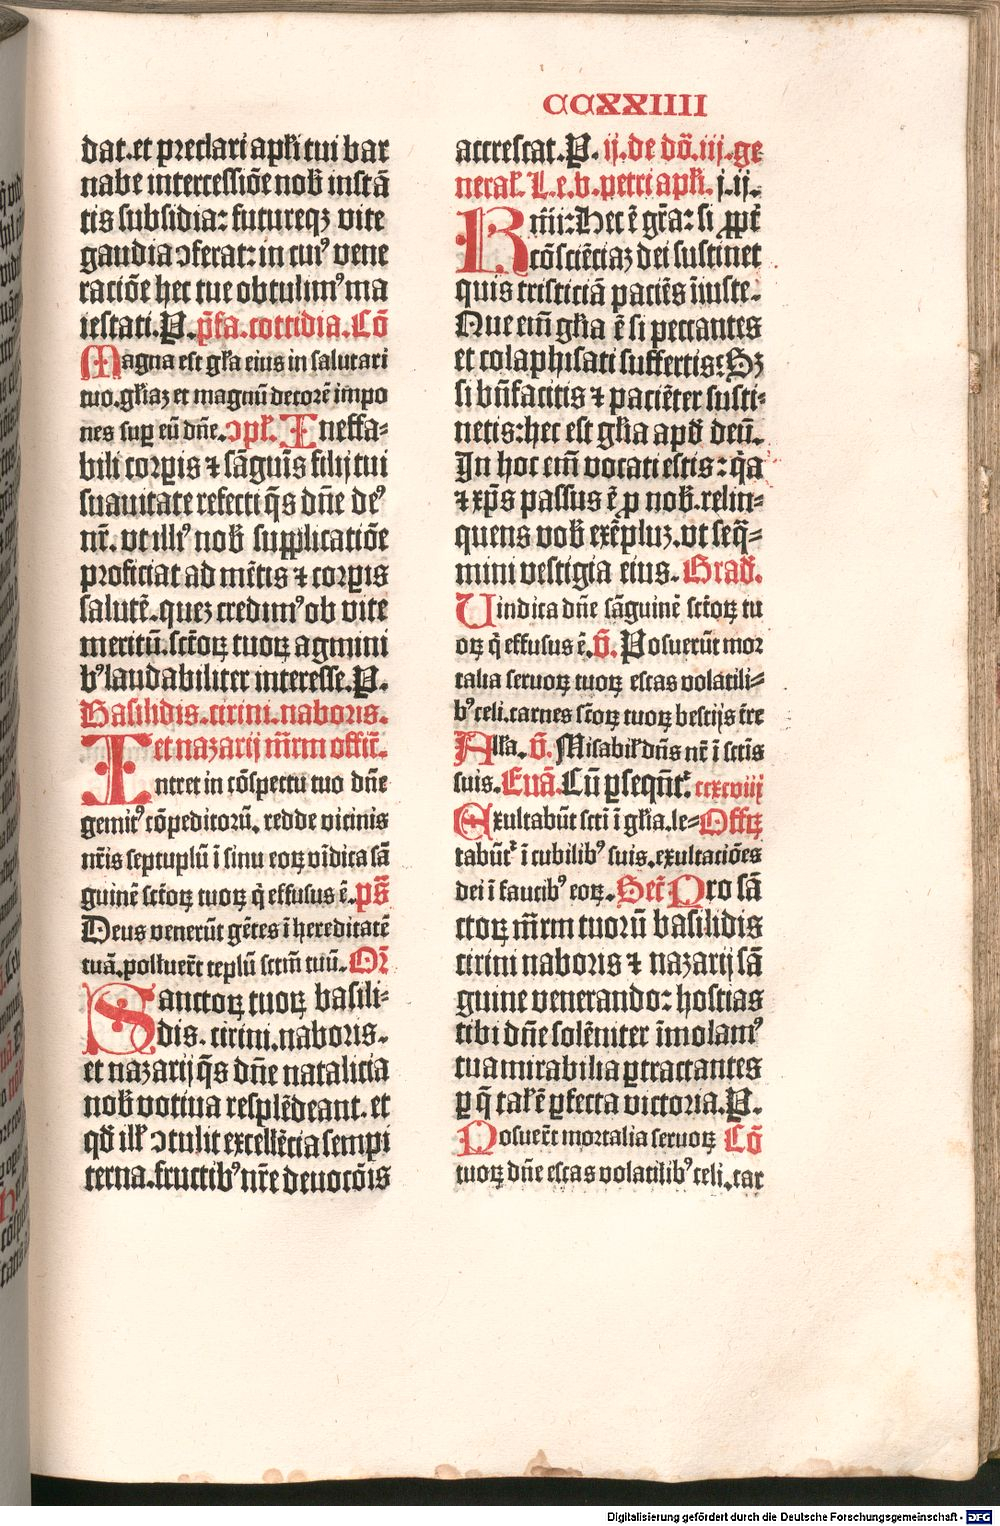 CCXXIIII
dat.et preclari apłi tui bar
nabe intercessiōe nob̄ instā
tis subsidia: futureqʒ vite
gaudia ↄferat: in cuiꝰ vene
ratiōe hec tue obtulimꝰ ma
iestati. P. p̄fa. cottidia. Cō
Magna est gła eius in salutari
tuo. głiaʒ et magnū decorē impo
nes suꝑ eū dn̄e. ↄpł. Ineffa⸗
bili corꝑis ⁊ sāguīs filij tui
suauitate refecti q̄s dn̄e deꝰ
nr̄. vt illiꝰ nob̄ supplicatiōe
proficiat ad mētis ⁊ corꝑis
salutē. queʒ credimꝰ ob vite
meritū. sctoꝝ tuoꝝ agmini
bꝰ laudabiliter interesse. P.
Basilidis. cirini. naboris.
et nazarij mr̄m officī.
Intret in cōspectu tuo dn̄e
gemitꝰ cōpeditorū. redde vicinis
nr̄is septuplū ī sinu eoꝝ vīdica sā
guinē sctoꝝ tuoꝝ q̄ effusus ē. ps̄
Deus venerūt gētes ī hereditatē
tuā. polluer̄t tēplū sctm̄ tuū. Or̄
Sanctoꝝ tuoꝝ basili⸗
dis. cirini. naboris.
et nazarij q̄s dn̄e natalicia
nob̄ votiua resplēdeant. et
qd̄ ill̵ ↄtulit excellētia sempi
terna. fructibꝰ nr̄e deuotōis
accrescat. P. ij. de dō. iij. ge
neral̵. L. e. b. petri apłi. j. ij.
Kmī: Hec ē gr̄a: si ꝓpt̄
cōsciētiaʒ dei sustinet
quis tristiciā patiēs īiuste.
Que em̄ głia ē si peccantes
et colaphisati suffertis: Sʒ
si bn̄facitis ⁊ patiēter susti⸗
netis: hec est głia apd̄ deū.
In hoc em̄ vocati estis: q̄a
⁊ xp̄s passus ē ꝓ nob̄. relin⸗
quens vob̄ exēpluʒ. vt seq̄⸗
mini vestigia eius. Grad̄.
Uindica dn̄e sāguinē sctoꝝ tu
oꝝ q̄ effusus ē. v̄. Posuerūt mor
talia seruoꝝ tuoꝝ escas volatili⸗
bꝰ celi. carnes sctoꝝ tuoꝝ bestijs tr̄e
Alła. v̄. Misabil̵ dn̄s nr̄ ī sctīs
suis. Euā. Cū ꝑseqn̄t̉. ccxcviij
Exultabūt scti ī głia. le⸗ Offꝝ
tabūt̉ ī cubilibꝰ suis. exultatiōes
dei ī faucibꝰ eoꝝ. Secr̄ Pro sā
ctoꝝ mr̄m tuorū basilidis
cirini naboris ⁊ nazarij sā
guine venerando: hostias
tibi dn̄e solēniter īmolamꝰ
tua mirabilia ꝑtractantes
ꝑ q̄ talē ꝑfecta victoria. P.
Posuer̄t mortalia seruoꝝ Cō
tuoꝝ dn̄e escas volatilibꝰ celi. car
Digitalisierung gefördert durch die Deutsche Forschungsgemeinschaft - DFG